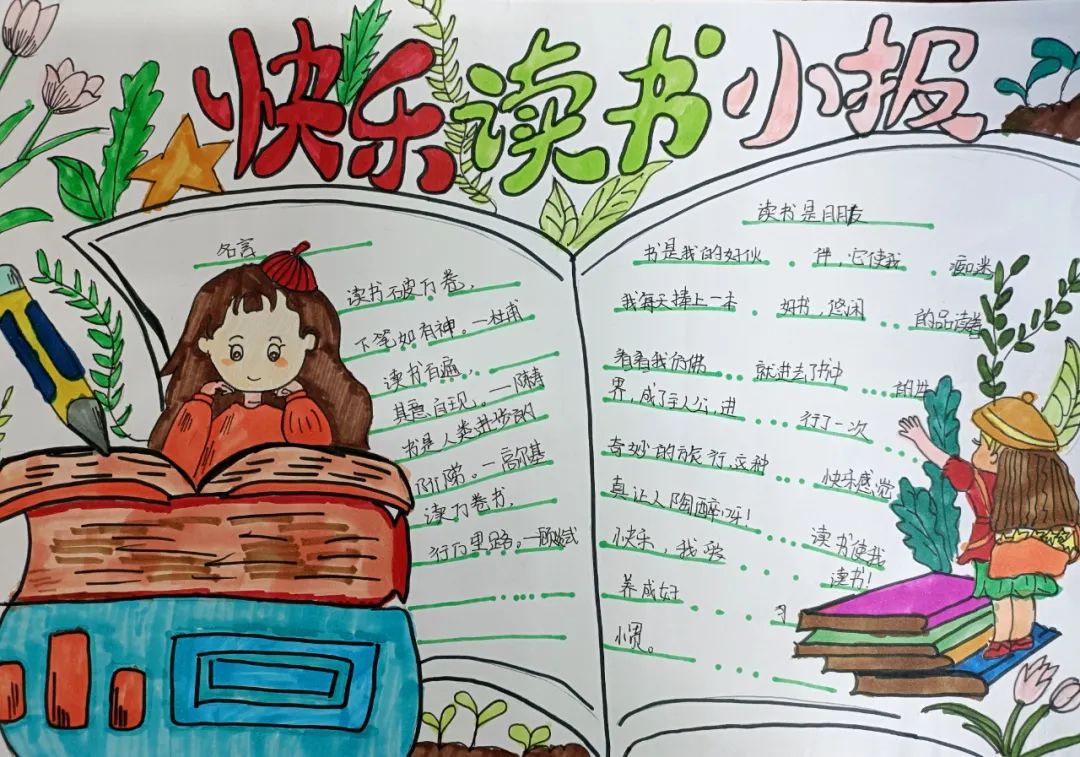 快乐读书小报
名言
读书不破万卷，
下笔如有神。—杜甫
读书百遍，
其意自现。—陈寿
书是人类进步的
阶梯。—高尔基
读万卷书，
行万里路。—
读书是月月友
书是我的好伙伴，它使我痴迷
我每天捧上一本好书，悠闲的品读着
看着我仿佛就进去了书中的世
界，成了主人公，进行了一次
奇妙的旅行，这种快乐感觉
真让人陶醉呀！读书使我
快乐，我爱读书！
养成好习
惯。